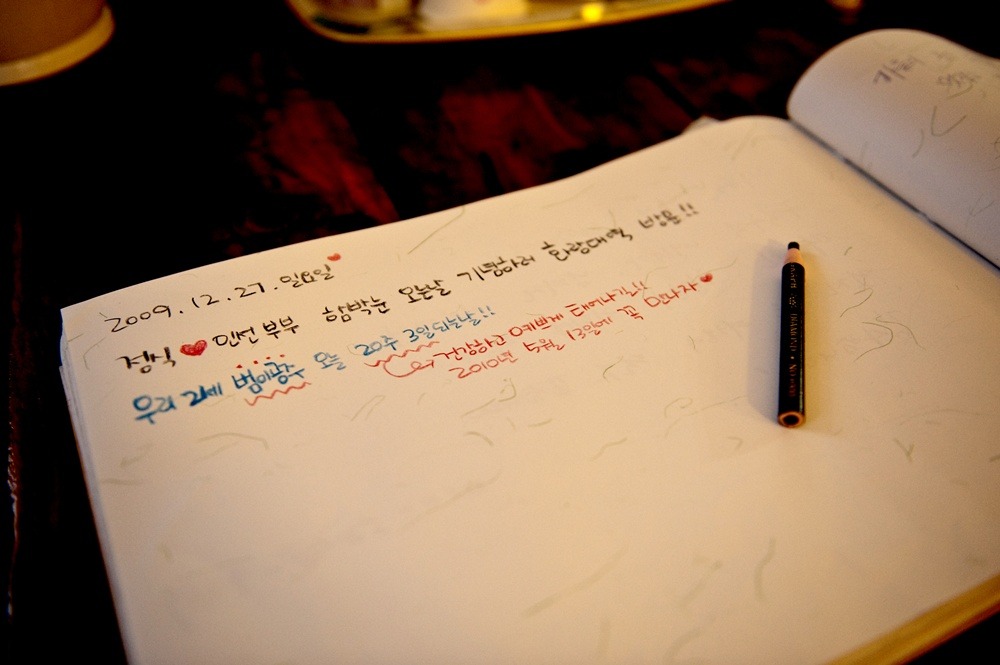 2009.12.27.일요일♥
정식♥민선 부부 함박눈 오는날 기념하러 화랑대역 방문!!
우리 2세 범이광수 오늘 20주 3일되는날!!
건강하고 예쁘게 태어나길!!
2010년 5월 13일에 꼭 만나자♥